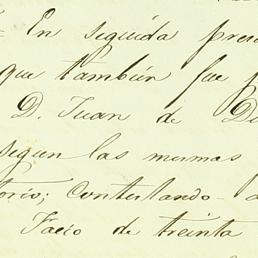 En seguida prese
que también fue p
D. Juan de Di
segun las mismas
torio; contestando a
Facio de treinta